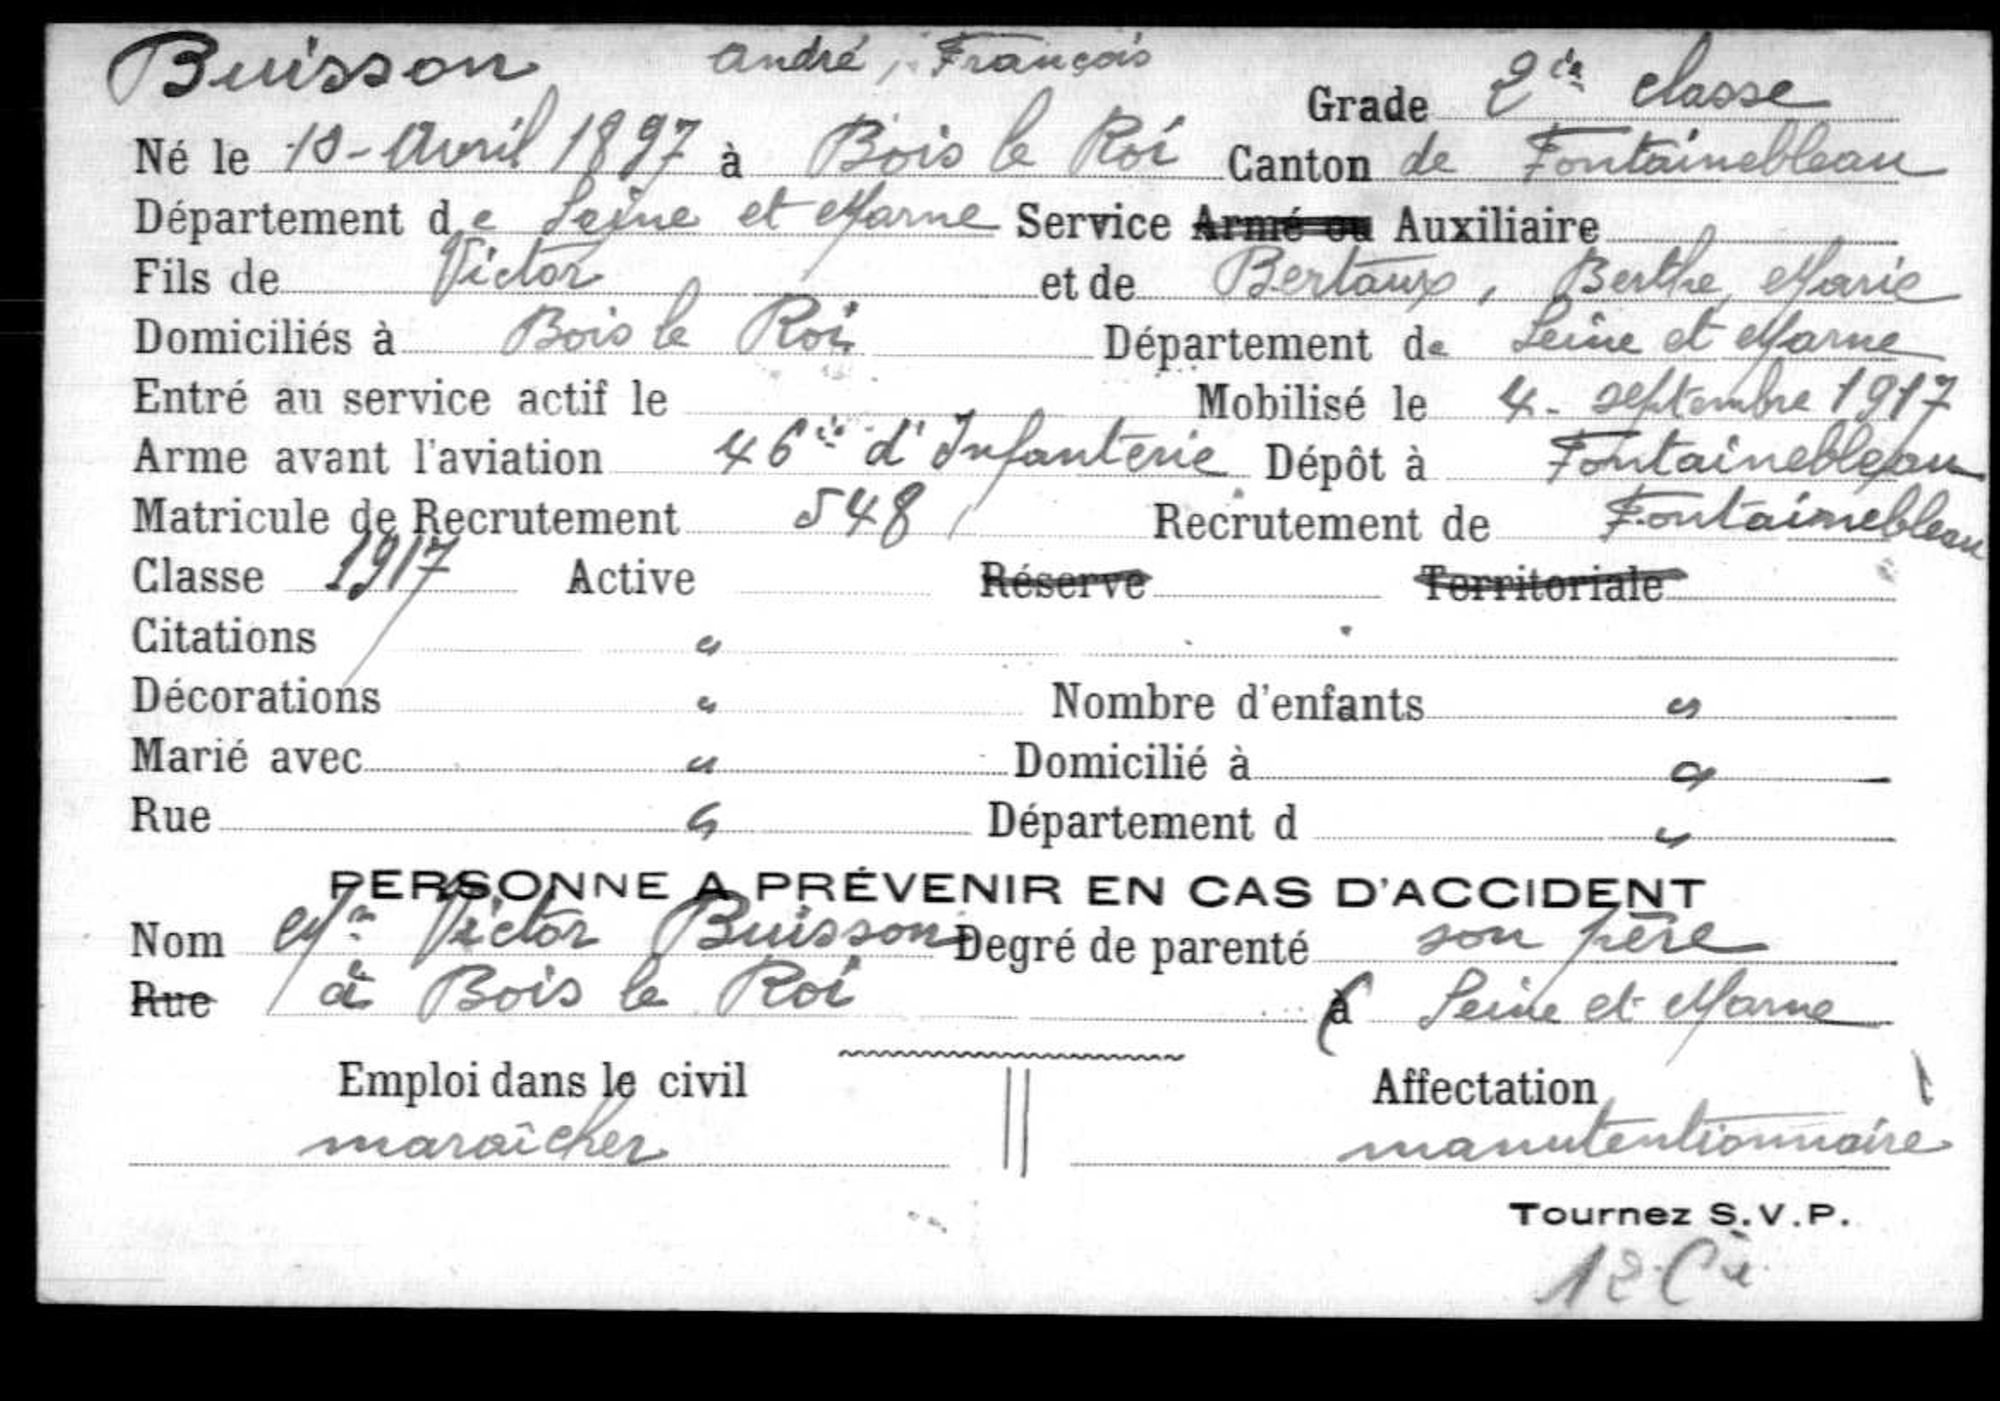 Buisson André, François
Grade 2ie classe
Né le 10 - Avril 1897 à Bois le Roi Canton de Fontainebleau
Département de Seine et Marne Service Armé ou Auxiliaire
Fils de Victor et de Bertaux, Berthe, Marie
Domiciliés à Bois le Roi Département de Seine et Marne
Entré au service actif le Mobilisé le 4 - septembre 1917
Arme avant l'aviation 46ie d'Infanterie Dépôt à Fontainebleau
Matricule de Recrutement 548 Recrutement de Fontainebleau
Classe 1917 Active Réserve Territoriale
Citations "
Décorations " Nombre d'enfants "
Marié avec " Domicilié à "
Rue " Département d "
PERSONNE A PRÉVENIR EN CAS D'ACCIDENT
Nom Mr Victor Buisson Degré de parenté son père
Rue à Bois le Roi à Seine et Marne
Emploi dans le civil Affectation
maraîcher manutentionnaire
Tournez S.V.P.
12 Cie